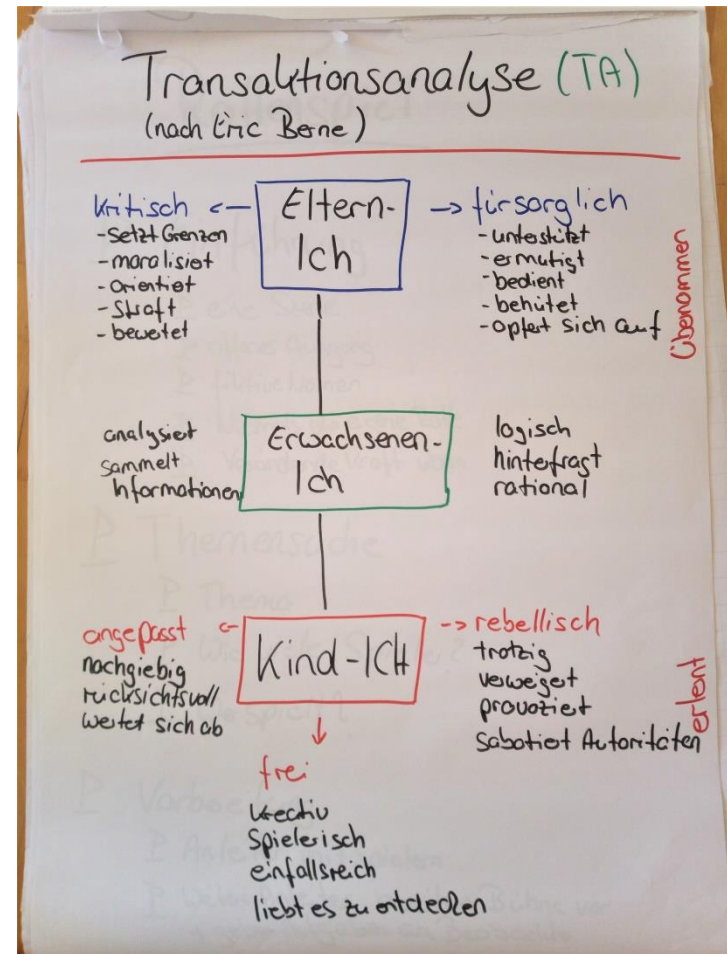 Transaktionsanalyse (TA)
(nach Eric Berne)
kritisch <-
- setzt Grenzen
- moralisiert
- orientiert
- straft
- bewertet
Eltern-
Ich
-> fürsorglich
- unterstützt
- ermutigt
- bedient
- behütet
- opfert sich auf
übernommen
analysiert
sammelt
Informationen
Erwachsenen-
Ich
logisch
hinterfragt
rational
angepasst <-
nachgiebig
rücksichtsvoll
wertet sich ab
Kind-ICH
-> rebellisch
trotzig
verweigert
provoziert
sabotiert Autoritäten
erlernt
frei
kreativ
spielerisch
einfallsreich
liebt es zu entdecken
Themensuche
Thema